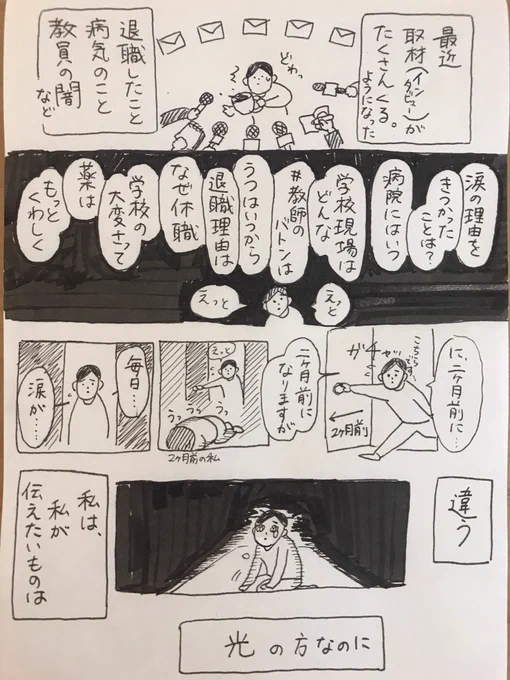 最近
取材(インタビュー)が
たくさんくる。
ようになった
どわっ
退職したこと
病気のこと
教員の闇
など
涙の理由を
きつかった
ことは?
病院にはいつ
学校現場は
どんな
#教師の
バトンは
うつはいつから
退職理由は
なぜ休職
学校の
大変さって
薬は
もっと
くわしく
えっと
えっと
に、二ヶ月前に…
こちら
です
ガチャ
2ヶ月前
二ヶ月前に
なりますが
えっと
うっ
うっ
うっ
2ヶ月前の私
毎日…
涙が…
違う
私は、
私が
伝えたいものは
光の方なのに